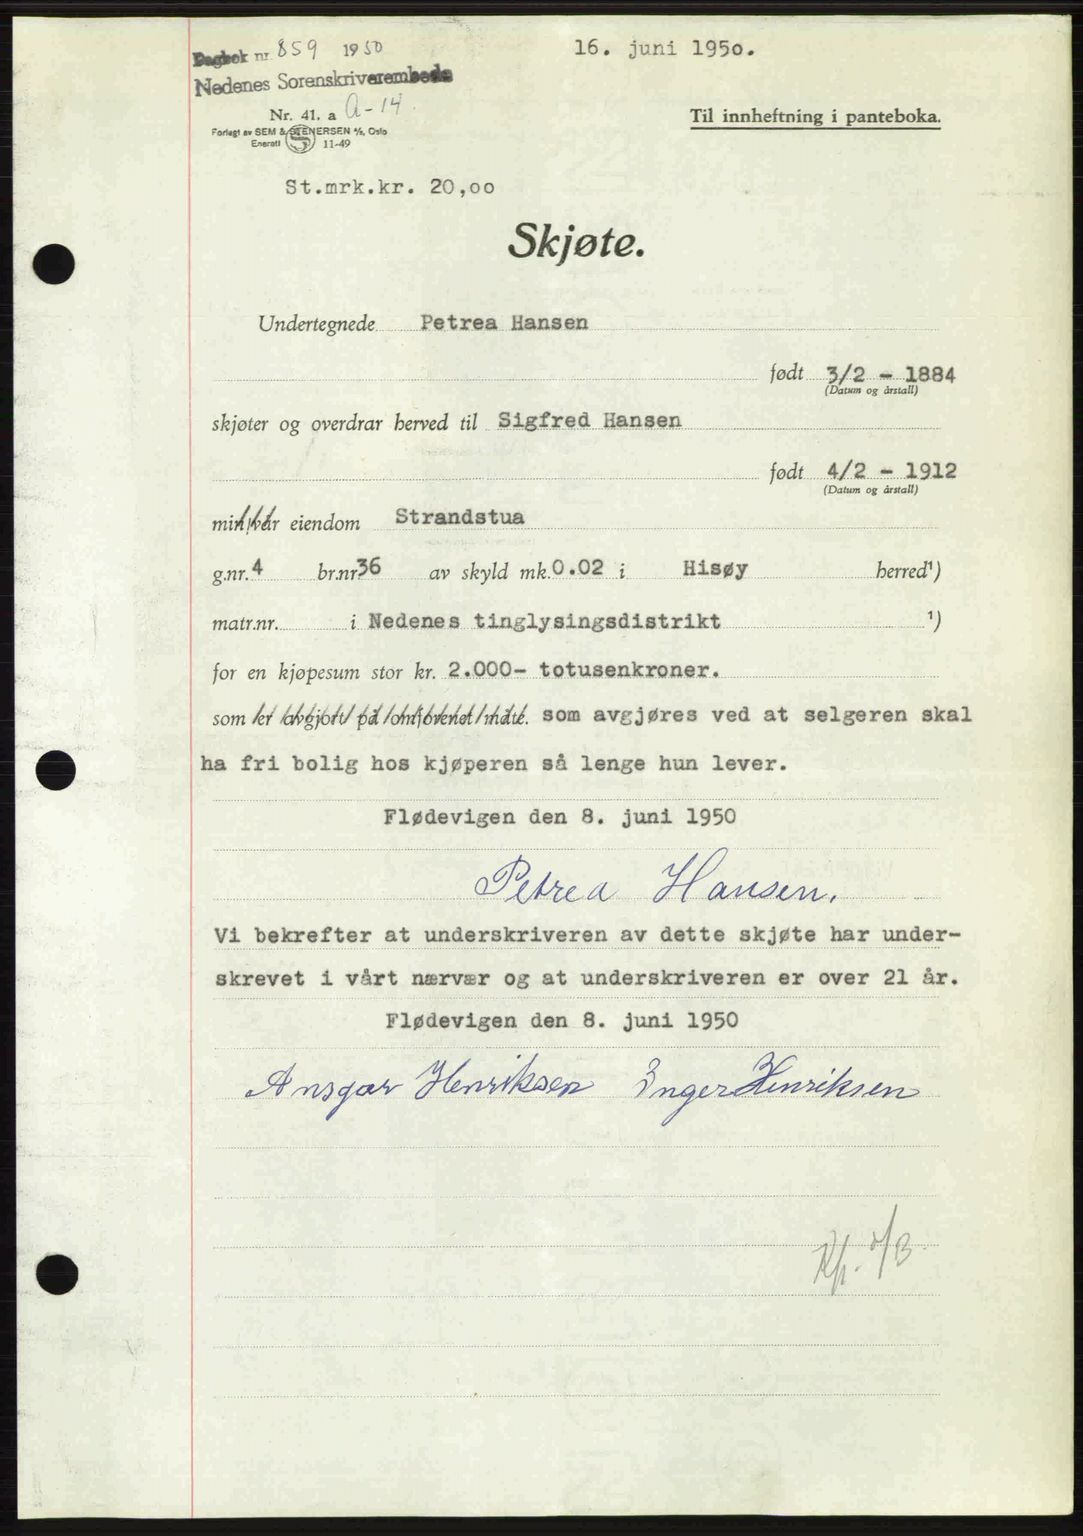 Dagbok nr. 859 1950
Nedenes Sorenskriverembede
16. juni 1950.
Nr. 41. a A-14
Forlagt av SEM & STENERSEN A/S, Oslo
Enerett 11-49
Til innheftning i panteboka.
St.mrk.kr. 20,00
Skjøte.
Undertegnede Petrea Hansen
født 3/2 - 1884
(Datum og årstall)
skjøter og overdrar herved til Sigfred Hansen
født 4/2 - 1912
(Datum og årstall)
min/vår eiendom Strandstua
g.nr. 4 br.nr 36 av skyld mk. 0.02 i Hisøy herred¹)
matr.nr. i Nedenes tinglysingsdistrikt ¹)
for en kjøpesum stor kr. 2.000- totusenkroner.
som er avgjort på omforenet måte. som avgjøres ved at selgeren skal
ha fri bolig hos kjøperen så lenge hun lever.
Flødevigen den 8. juni 1950
Petrea Hansen.
Vi bekrefter at underskriveren av dette skjøte har under-
skrevet i vårt nærvær og at underskriveren er over 21 år.
Flødevigen den 8. juni 1950
Ansgar Henriksen Inger Henriksen